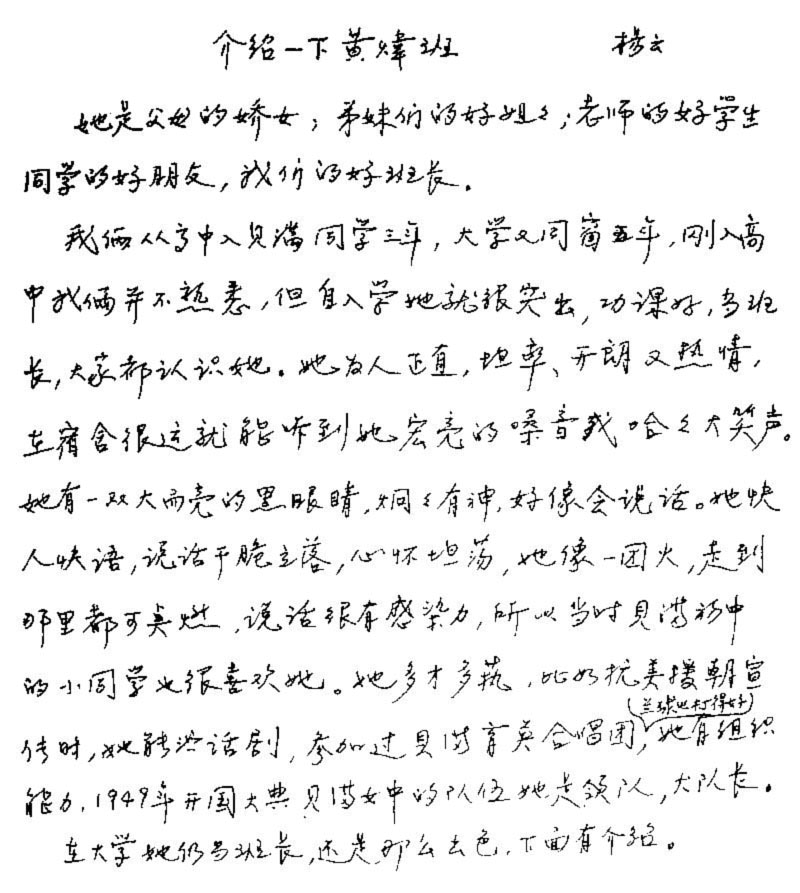 介绍一下黄煒班 杨云
她是父母的娇女；弟妹们的好姐々；老师的好学生
同学的好朋友，我们的好班长。
我俩从高中入贝满同学三年，大学又同窗五年，刚入高
中我俩并不熟悉，但自入学她就很突出，功课好，当班
长，大家都认识她。她为人正直，坦率、开朗又热情，
在宿舍很远就能听到她宏亮的嗓音或哈々大笑声。
她有一双大而亮的黑眼睛，炯々有神，好像会说话。她快
人快语，说话干脆立落，心怀坦荡，她像一团火，走到
那里都可点燃，说话很有感染力，所以当时贝满初中
的小同学也很喜欢她。她多才多艺，比如抗美援朝宣
（兰球也打得好）
传时，她能演话剧，参加过贝满育英合唱团，她有组织
能力，1949年开国大典贝满女中的队伍她是领队，大队长。
在大学她仍当班长，还是那么出色，下面有介绍。